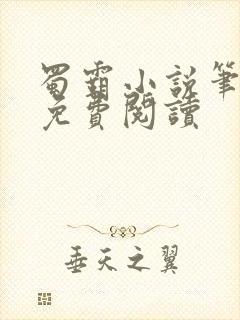 蜀霸小説筆
免費閱讀
垂天之翼